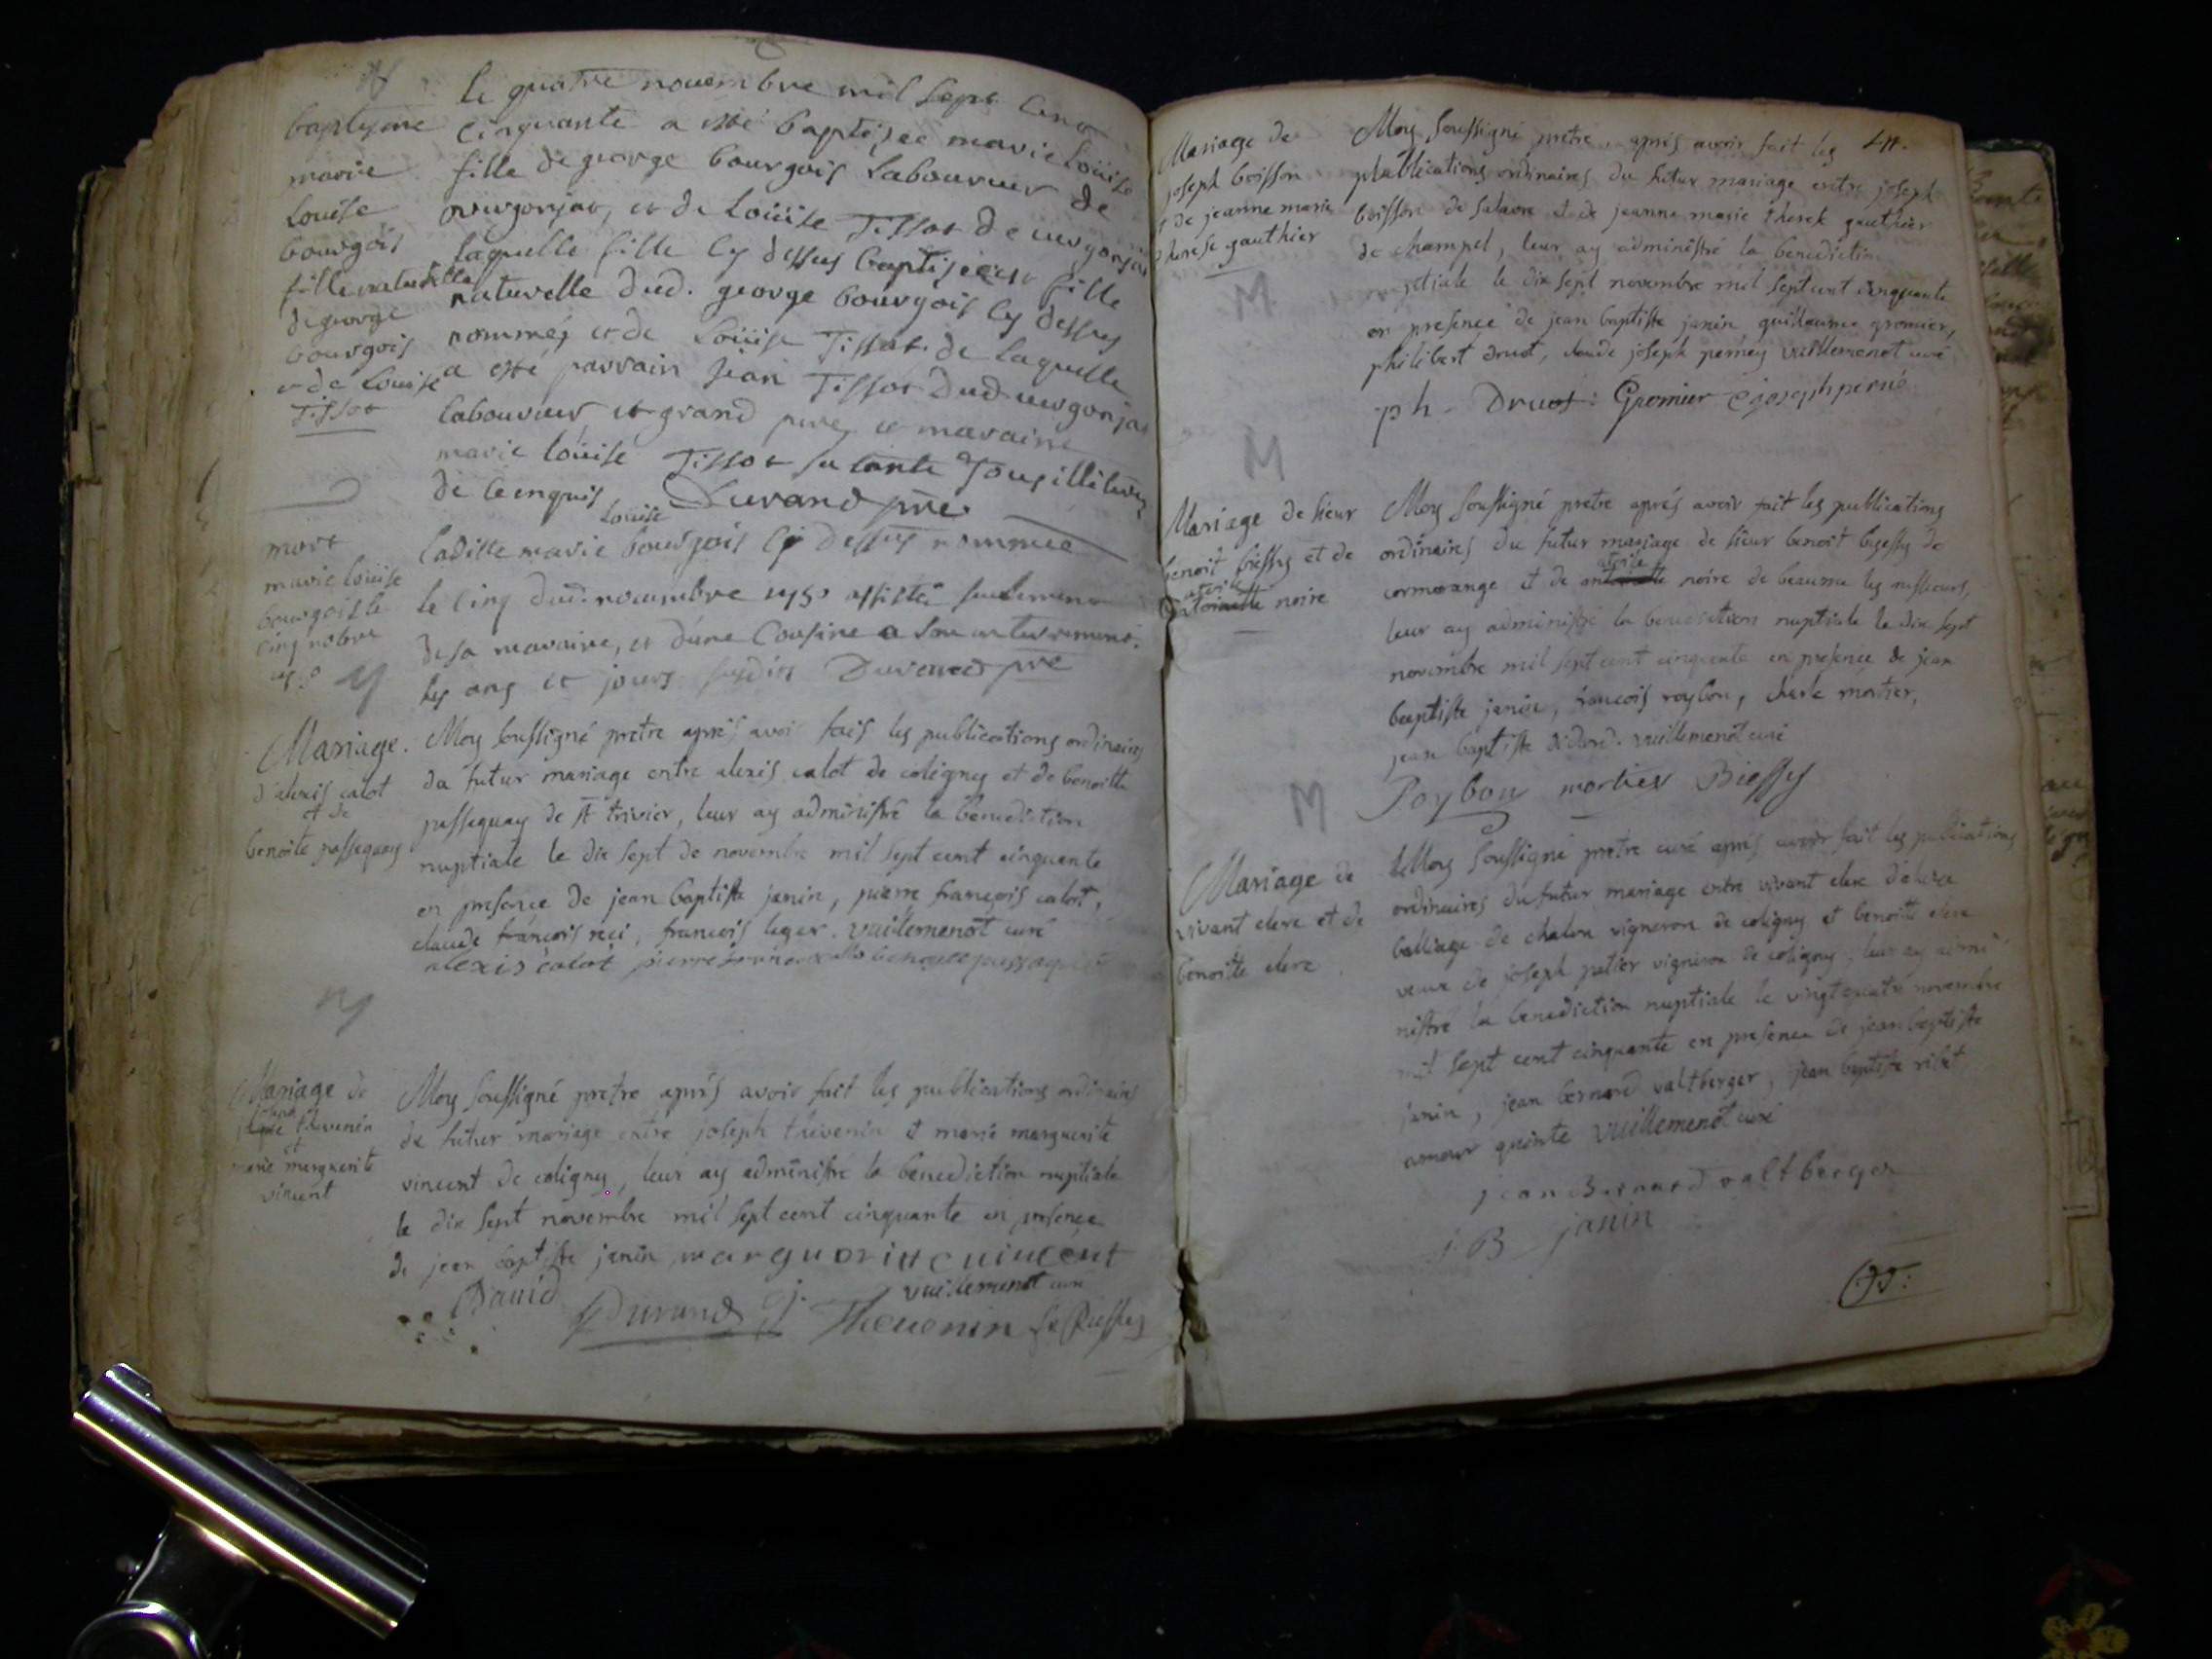 baptesme
marie
Louise
bourgois
fille naturelle
de george
bourgois
et de Louise
Tissot
le quatre novembre mil sept cent
cinquante a esté baptisée marie Louise
fille de george bourgois Laboureur de
et de Loüise Tissot de
laquelle fille cy dessus baptisée est fille
naturelle dud. george bourgois cy dessus
nommé, et de Loüise Tissot de Laquelle
a esté parrain jean Tissot dud
laboureur et grand pere et maraine
marie loüise Tissot sa tante Tous illiterez
de ce enquis Durand ptre
mort
marie loüise
bourgois le
cinq nobre
1750
Louise
Laditte marie bourgois cy dessus nommée
le cinq dud. novembre 1750 assisté seulement
de sa maraine, et d'une Cousine a son enterrement.
les ans et jours susdits Durand ptre
Mariage.
d'alexis calot
et de
benoite passaquay
Moy soussigné pretre apres avoi fais les publications ordinaires
du futur mariage entre alexis calot de coligny et de benoitte
passaquay de st trivier, leur ay administré la benediction
nuptiale le dix sept de novembre mil sept cent cinquante
en presence de jean baptiste janin, pierre françois calot,
claude françois reci, francois leger. vuillemenot curé
alexis calot pierre
Mariage de
joseph thevenin
et
marie marguerite
vincent
Moy soussigné pretre aprés avoir fait les publications ordinaires
du futur mariage entre joseph thevenin et marie marguerite
vincent de coligny, leur ay administré la benediction nuptiale
le dix sept novembre mil sept cent cinquante en presence
de jean baptiste janin marguerite vincent
vuillemenot curé
David Durand j. Thevenin
44.
Mariage de
joseph boisson
et de jeanne marie
therese gauthier
Moy soussigné pretre, aprés avoir fait les
publications ordinaires du futur mariage entre joseph
boisson de salavre et de jeanne marie gauthier
de champel, leur ay administré la benediction
nuptiale le dix sept novembre mil sept cent cinquante
en presence de jean baptiste janin guillaume gromier,
philibert druot, claude joseph perney vuillemenot curé
ph. Druot: Gromier C joseph perné
M
M
Mariage de sieur
benoit biessy et de
noire
Moy soussigné pretre aprés avoir fait les publications
ordinaires du futur mariage de sieur benoit biessy de
cormorange et de noire de beaume les messieurs,
leur ay administré la benediction nuptiale le dix sept
novembre mil sept cent cinquante en presence de jean
baptiste janin, francois roybon, mortier,
jean baptiste vuillemenot curé
Roybon mortier Biessy
M
Mariage de
vivant clerc et de
benoite clerc
Moy soussigné pretre curé aprés avoir fait les publications
ordinaires du futur mariage entre vivant clerc
balliage de chalon vigneron de coligny et benoite clerc
veuve de joseph patier vigneron de coligny, leur ay admi
nistré la benediction nuptiale le vingt quatre novembre
mil sept cent cinquante en presence de jean baptiste
janin, jean bernard valtberger, jean baptiste
amour quinte vuillemenot curé
jean Bernard valtberger
J B janin